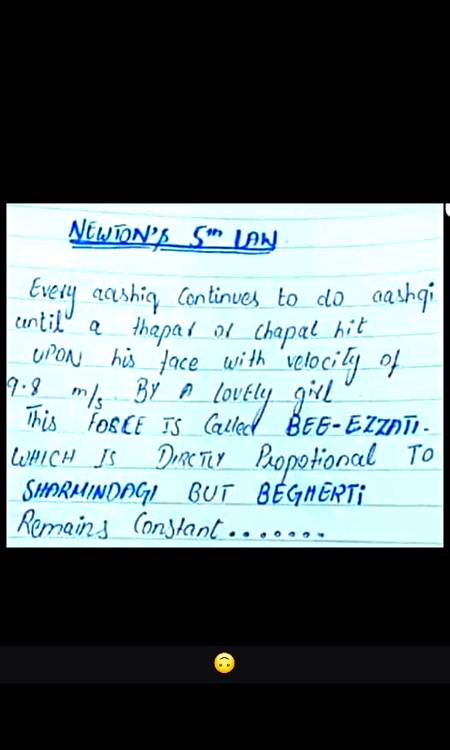 NEWTON'S 5th LAW
Every aashiq continues to do aashqi
until a thapar or chapal hit
UPON his face with velocity of
9.8 m/s BY A lovely girl
This FORCE IS Called BEE-EZZATI.
WHICH IS DIRCTLY Propotional TO
SHARMINDAGI BUT BEGHERTI
Remains Constant........
🙃